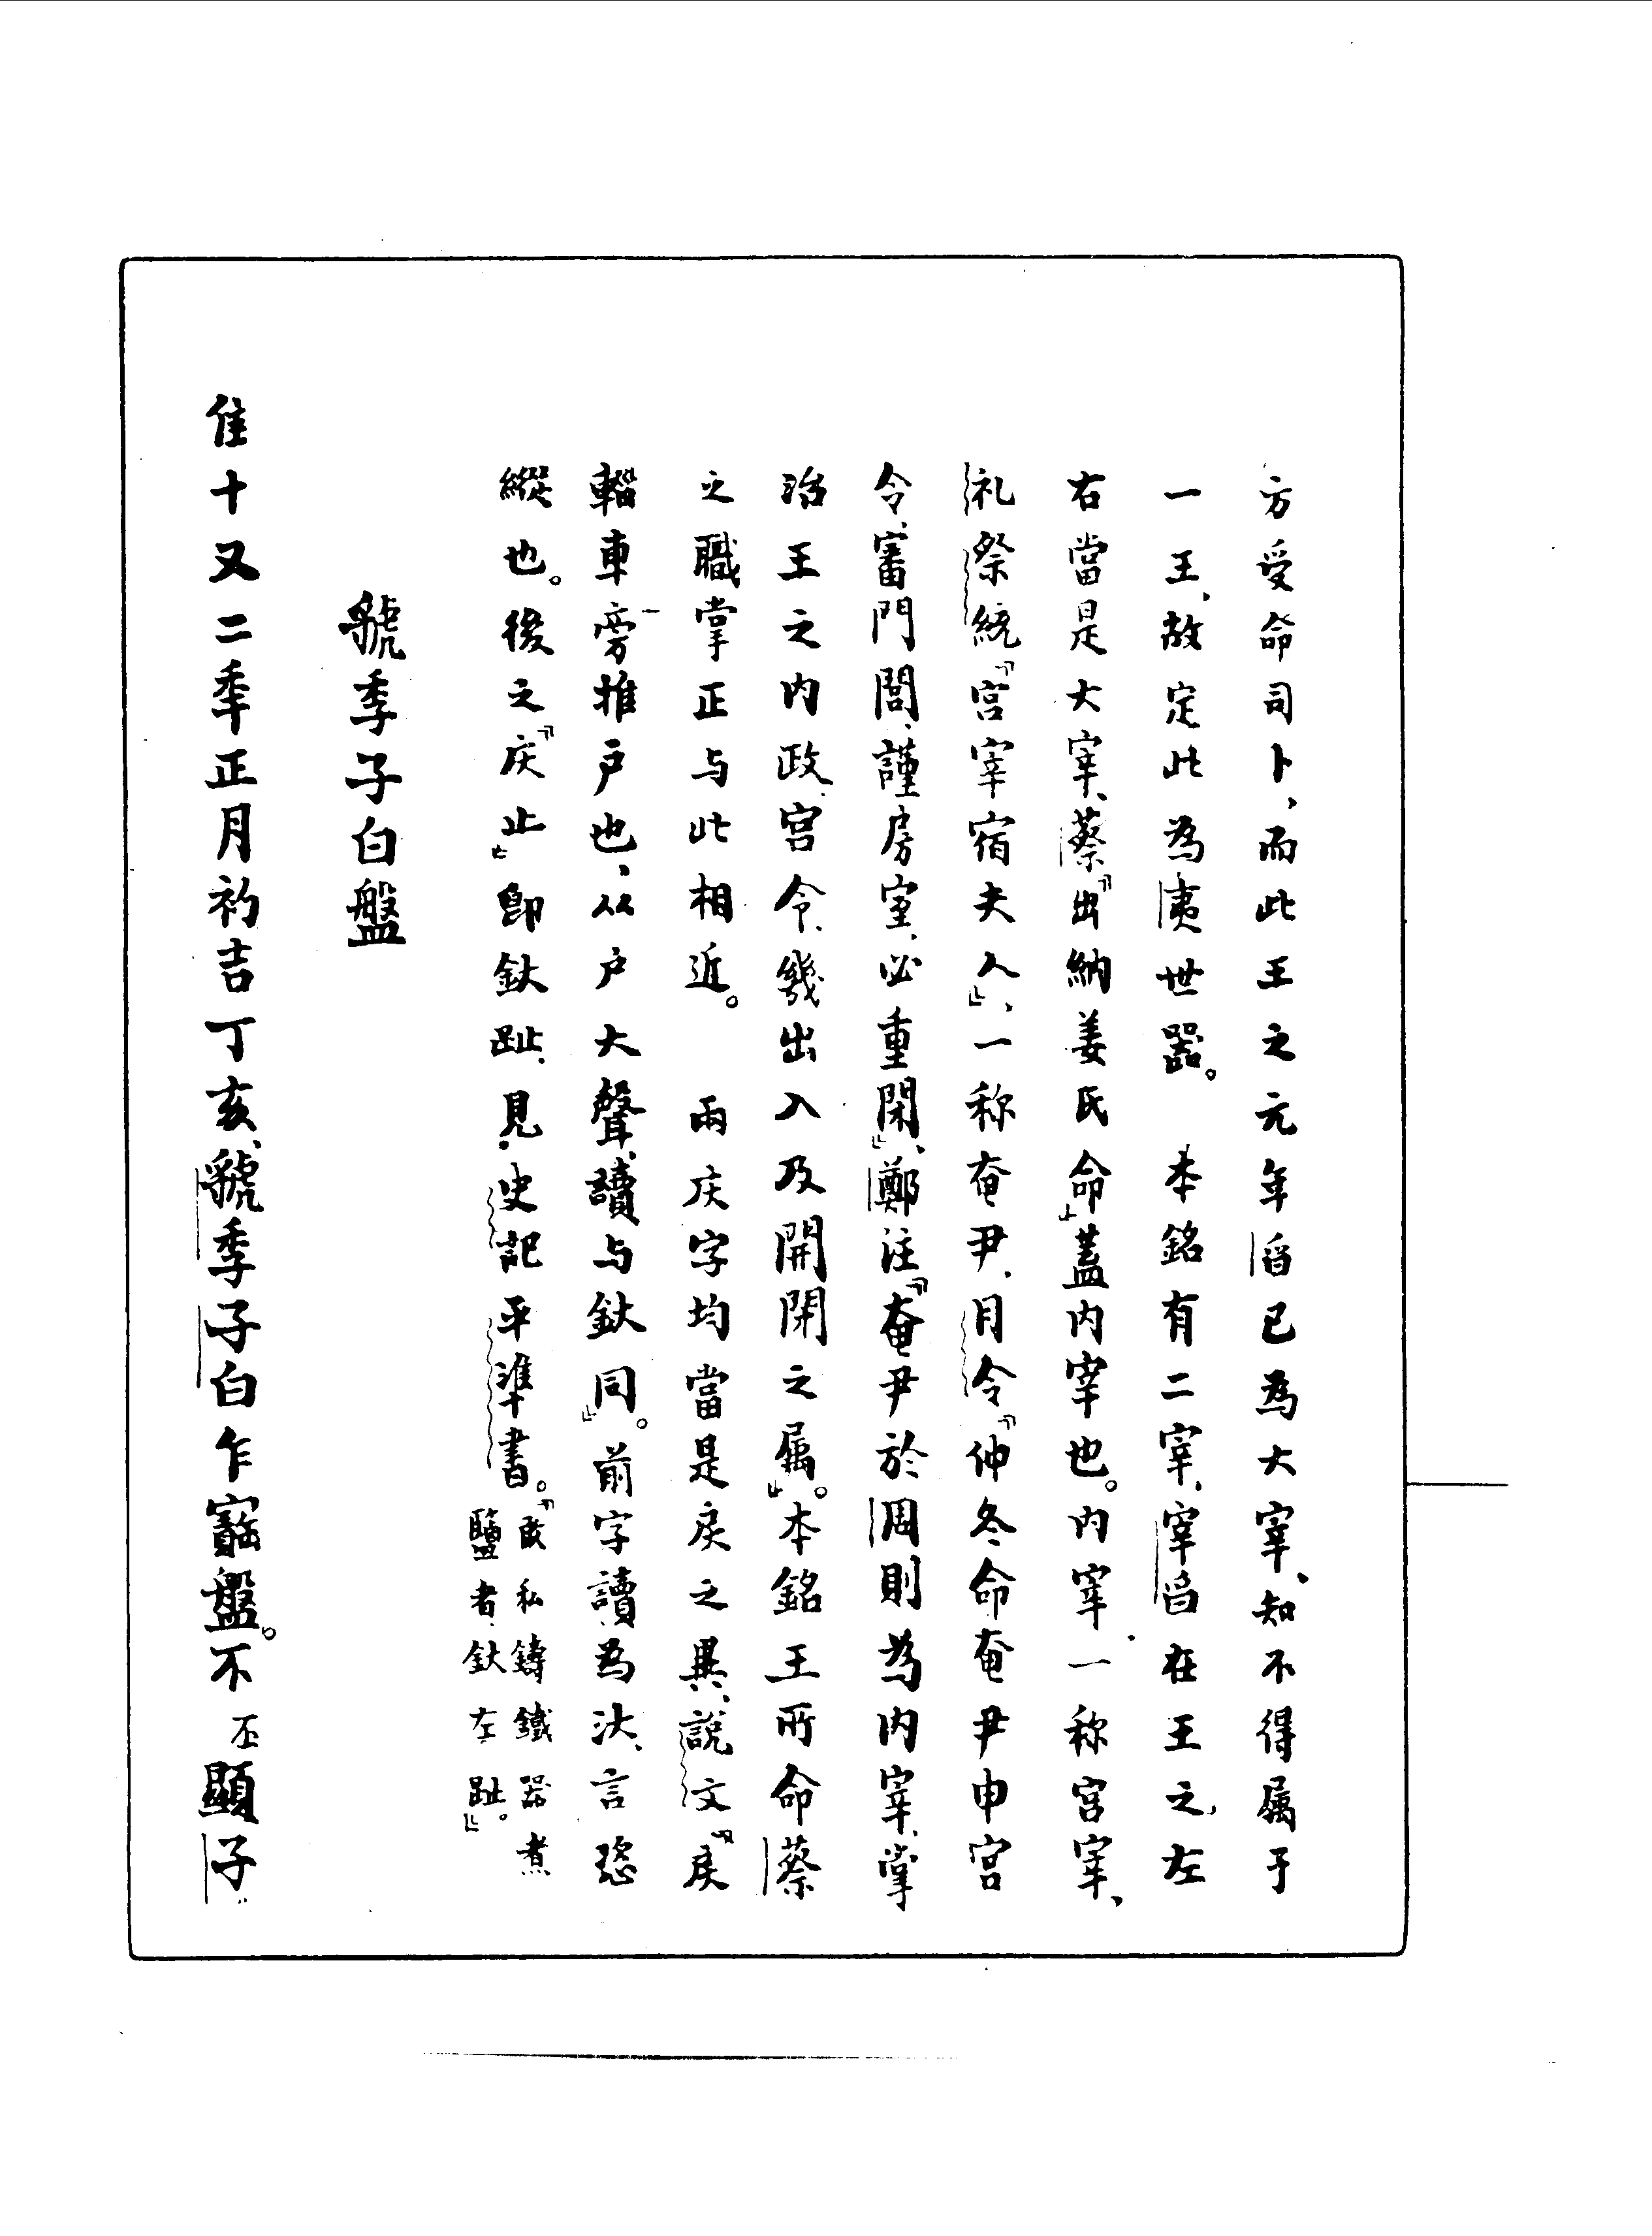 方受命司卜，而此王之元年舀已為大宰、知不得属于
一王、故定此為夷世器。　本銘有二宰、宰舀在王之左
右當是大宰、蔡『出納姜氏命』蓋内宰也。内宰一称宫宰、
礼祭統『宫宰宿夫人』、一称奄尹、月令『仲冬命奄尹申宫
令、審門閭、謹房室、必重閉』、鄭注『奄尹於周則為内宰、掌
治王之内政、宫令、幾出入及開閉之属』。本銘王所命蔡
之職掌正与此相近。　兩㡀字均當是戾之異、説文『戾
輜車旁推戶也、从戶大聲、讀与釱同』。前字讀為汏、言恣
縱也。後之『㡀止』即釱趾、見史記平準書。『敢私鑄鐵器煮
鹽者、釱左趾。』
虢季子白盤
隹十又二年正月初吉丁亥、虢季子白乍寶盤。不丕顯子〻